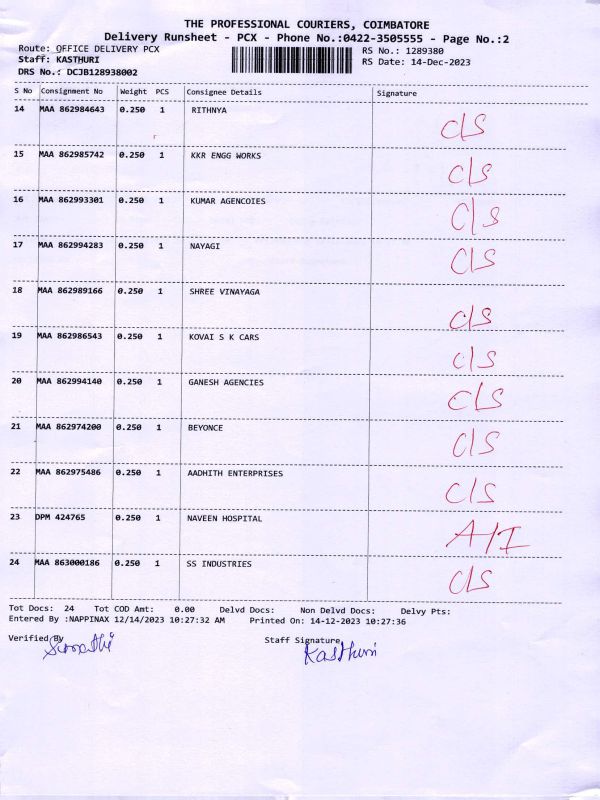 THE PROFESSIONAL COURIERS, COIMBATORE
Delivery Runsheet - PCX - Phone No.:0422-3505555 - Page No.:2
Route: OFFICE DELIVERY PCX RS No.: 1289380
Staff: KASTHURI RS Date: 14-Dec-2023
DRS No.: DCJB128938002
S No Consignment No Weight PCS Consignee Details Signature
14 MAA 862984643 0.250 1 RITHNYA C/S
15 MAA 862985742 0.250 1 KKR ENGG WORKS C/S
16 MAA 862993301 0.250 1 KUMAR AGENCOIES C/S
17 MAA 862994283 0.250 1 NAYAGI C/S
18 MAA 862989166 0.250 1 SHREE VINAYAGA C/S
19 MAA 862986543 0.250 1 KOVAI S K CARS C/S
20 MAA 862994140 0.250 1 GANESH AGENCIES C/S
21 MAA 862974200 0.250 1 BEYONCE C/S
22 MAA 862975486 0.250 1 AADHITH ENTERPRISES C/S
23 DPM 424765 0.250 1 NAVEEN HOSPITAL A/I
24 MAA 863000186 0.250 1 SS INDUSTRIES C/S
Tot Docs: 24 Tot COD Amt: 0.00 Delvd Docs: Non Delvd Docs: Delvy Pts:
Entered By :NAPPINAX 12/14/2023 10:27:32 AM Printed On: 14-12-2023 10:27:36
Verified By Staff Signature
Kasthuri